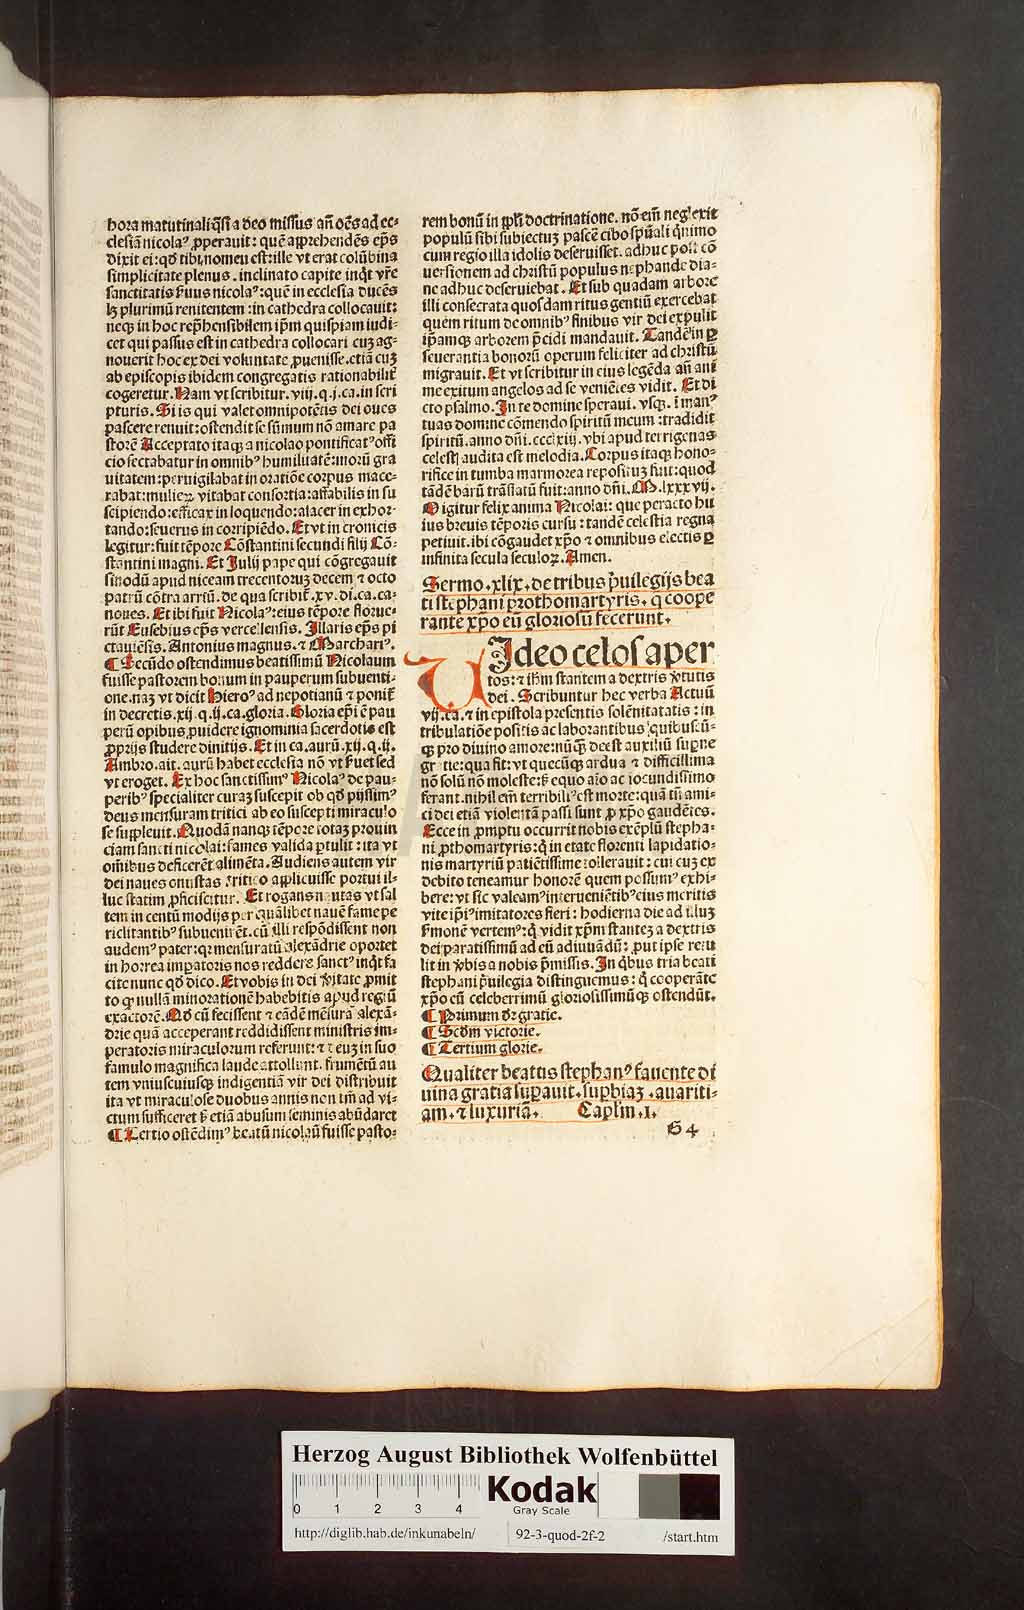 hora matutinali q̃si a deo missus añ oẽs ad ec-
clesiã nicolaꝰ ꝓperauit: quẽ apprehendẽs ep̃s
dixit ei: qđ tibi nomen est: ille vt erat colũbina
simplicitate plenus. inclinato capite inq̃t vr̃e
sanctitatis s̃uus nicolaꝰ: quẽ in ecclesia ducẽs
lꝫ plurimũ renitentem: in cathedra collocauit:
neqꝫ in hoc rep̃hensibilem ip̃m quispiam iudi-
cet qui passus est in cathedra collocari cuꝫ ag-
nouerit hoc ex dei voluntate ꝓuenisse. etiã cuꝫ
ab episcopis ibidem congregatis rationabilit̃
cogeretur. Nam vt scribitur. viij. q. j. ca. in scri
pturis. Si is qui valet omnipotẽtis dei oues
pascere renuit: ostendit se sũmum nõ amare pa
storẽ Acceptato itaqꝫ a nicolao pontificatꝰ offi
cio sectabatur in omnibꝰ humilitatẽ: morũ gra
uitatem: peruigilabat in oratiõe corpus mace-
rabat: mulieꝝ vitabat consortia: affabilis in su
scipiendo: efficax in loquendo: alacer in exhor-
tando: seuerus in corripiẽdo. Et vt in cronicis
legitur: fuit tẽpore Cõstantini secundi filij Cõ-
stantini magni. Et Julij pape qui cõgregauit
sinodũ apud niceam trecentoruꝫ decem ⁊ octo
patrũ cõtra arriũ. de qua scribit̃. xv. di. ca. ca-
nones. Et ibi fuit Nicolaꝰ: eius tẽpore florue-
rũt Eusebius ep̃s vercellensis. Illaris ep̃s pi
ctauiẽsis. Antonius magnus. ⁊ Marchariꝰ.
¶ Secũdo ostendimus beatissimũ Nicolaum
fuisse pastorem bonum in pauperum subuenti-
one. naꝫ vt dicit Hieroꝰ ad nepotianũ ⁊ ponit̃
in decretis. xij. q. ij. ca. gloria. Gloria ep̃i ẽ pau
perũ opibus ꝓuidere ignominia sacerdotis est
ꝓprijs studere diuitijs. Et in ca. aurũ. xij. q. ij.
Ambro. ait. aurũ habet ecclesia nõ vt s̃uet sed
vt eroget. Ex hoc sanctissimꝰ Nicolaꝰ de pau-
peribꝰ specialiter curaꝫ suscepit ob qđ pijssimꝰ
deus mensuram tritici ab eo suscepti miraculo
se suppleuit. Quodã nanqꝫ tẽpore totaꝫ prouin
ciam sancti nicolai: fames valida ꝑtulit: ita vt
om̃ibus deficerẽt alimẽta. Audiens autem vir
dei naues onustas tritico applicuisse portui il-
luc statim ꝓficiscitur. Et rogans nautas vt sal
tem in centũ modijs per quãlibet nauẽ fame pe
riclitantibꝰ subuenirẽt. cũ illi respõdissent non
audemꝰ pater: qꝛ mensuratũ alexãdrie oportet
in horrea imperatoris nos reddere sanctꝰ inq̃t fa
cite nunc qđ dico. Et vobis in dei v̾itate ꝓmit
to qꝫ nullã minorationẽ habebitis apud regiũ
exactorẽ. Qđ cũ fecissent ⁊ eãdẽ mẽsurã alexã-
drie quã acceperant reddidissent ministris im-
peratoris miraculorum referunt: ⁊ deuꝫ in suo
famulo magnifica laude attollunt. frumẽtũ au
tem vniuscuiusqꝫ indigentiã vir dei distribuit
ita vt miraculose duobus annis non tm̃ ad vi-
ctum sufficeret sꝫ etiã abusum seminis abũdaret
¶ Tertio ostẽdimꝰ beatũ nicolaũ fuisse pasto-
rem bonũ in ppl̃i doctrinatione. nõ em̃ neglexit
populũ sibi subiectuꝫ pascẽ cibo sp̃uali q̃nimo
cum regio illa idolis deseruisset. adhuc post cõ
uersionem ad christũ populus nephande dia-
ne adhuc deseruiebat. Et sub quadam arbore
illi consecrata quosdam ritus gentiũ exercebat
quem ritum de omnibꝰ finibus vir dei expulit
ip̃amqꝫ arborem p̃cidi mandauit. Tandẽ in ꝑ
seuerantia bonorũ operum feliciter ad christũ
migrauit. Et vt scribitur in eius legẽda añ ani
me exitum angelos ad se veniẽtes vidit. Et di
cto psalmo. In te domine speraui. vsqꝫ. ĩ manꝰ
tuas domine cõmendo spiritũ meum: tradidit
spiritũ. anno dñi. cccxiij. vbi apud terrigenas
celestꝭ audita est melodia. Corpus itaqꝫ hono-
rifice in tumba marmorea repositũ fuit: quod
tãdẽ barũ trãslatũ fuit: anno dñi. M. lxxxvij.
O igitur felix anima Nicolai: que peracto hu
ius breuis tẽporis cursu: tandẽ celestia regna
petiuit. ibi cõgaudet xp̃o ⁊ omnibus electis ꝑ
infinita secula seculoꝝ. Amen.
Sermo. xlix. de tribus p̃uilegijs bea
ti stephani prothomartyris. q̃ coope
rante xp̃o eũ gloriosũ fecerunt.
VIdeo celos aper
tos: ⁊ ih̃m stantem a dextris v̾tutis
dei. Scribuntur hec verba Actuũ
vij. ca. ⁊ in epistola presentis solẽnitatis: in
tribulatiõe positis ac laborantibus quibuscũ-
qꝫ pro diuino amore: nũqꝫ deest auxiliũ supne
gratie: qua fit: vt quecũqꝫ ardua ⁊ difficillima
nõ solũ nõ moleste: sꝫ equo aĩo ac iocundissimo
ferant. nihil em̃ terribiliꝰ est morte: quã tñ ami-
ci dei etiã violentã passi sunt ꝓ xp̃o gaudẽtes.
Ecce in ꝓmptu occurrit nobis exẽplũ stepha-
ni ꝓthomartyris: q̃ in etate florenti lapidatio-
nis martyriũ patiẽtissime tollerauit: cui cuꝫ ex
debito teneamur honorẽ quem possumꝰ exhi-
bere: vt sic valeamꝰ interueniẽtibꝰ eius meritis
vite ip̃iꝰ imitatores fieri: hodierna die ad illuꝫ
s̃monẽ vertemꝰ: q̃ vidit xp̃m stanteꝫ a dextris
dei paratissimũ ad eũ adiuuãdũ: ꝓut ipse retu
lit in v̾bis a nobis p̃missis. In q̃bus tria beati
stephani p̃uilegia distinguemus: q̃ cooperãte
xp̃o eũ celeberrimũ gloriosissimũqꝫ ostendũt.
¶ Primum dr̃ gratie.
¶ Scđm victorie.
¶ Tertium glorie.
Qualiter beatus stephanꝰ fauente di
uina gratia suꝑauit. suꝑbiaꝫ. auariti-
am. ⁊ luxuriã. Caplm. I.
G 4
Herzog August Bibliothek Wolfenbüttel
0 1 2 3 4
Kodak
Gray Scale
http://diglib.hab.de/inkunabeln/ 92-3-quod-2f-2 /start.htm